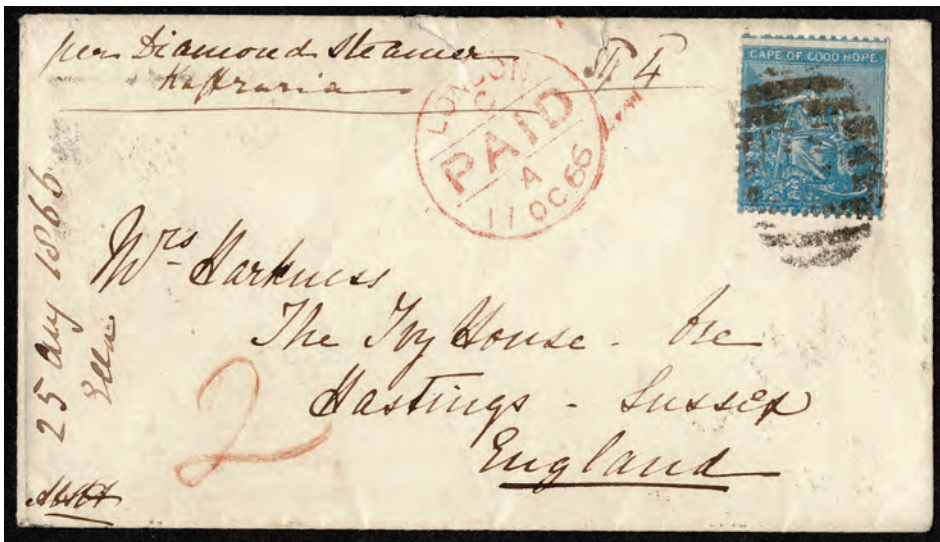 per Diamond Steamer
Kaffraria
4
CAPE OF GOOD HOPE
LONDON
C
PAID
A
11 OC 66
25 Aug 1866
Ella
Mrs Harkness
The Ivy House - Ore
Hastings - Sussex
England
2